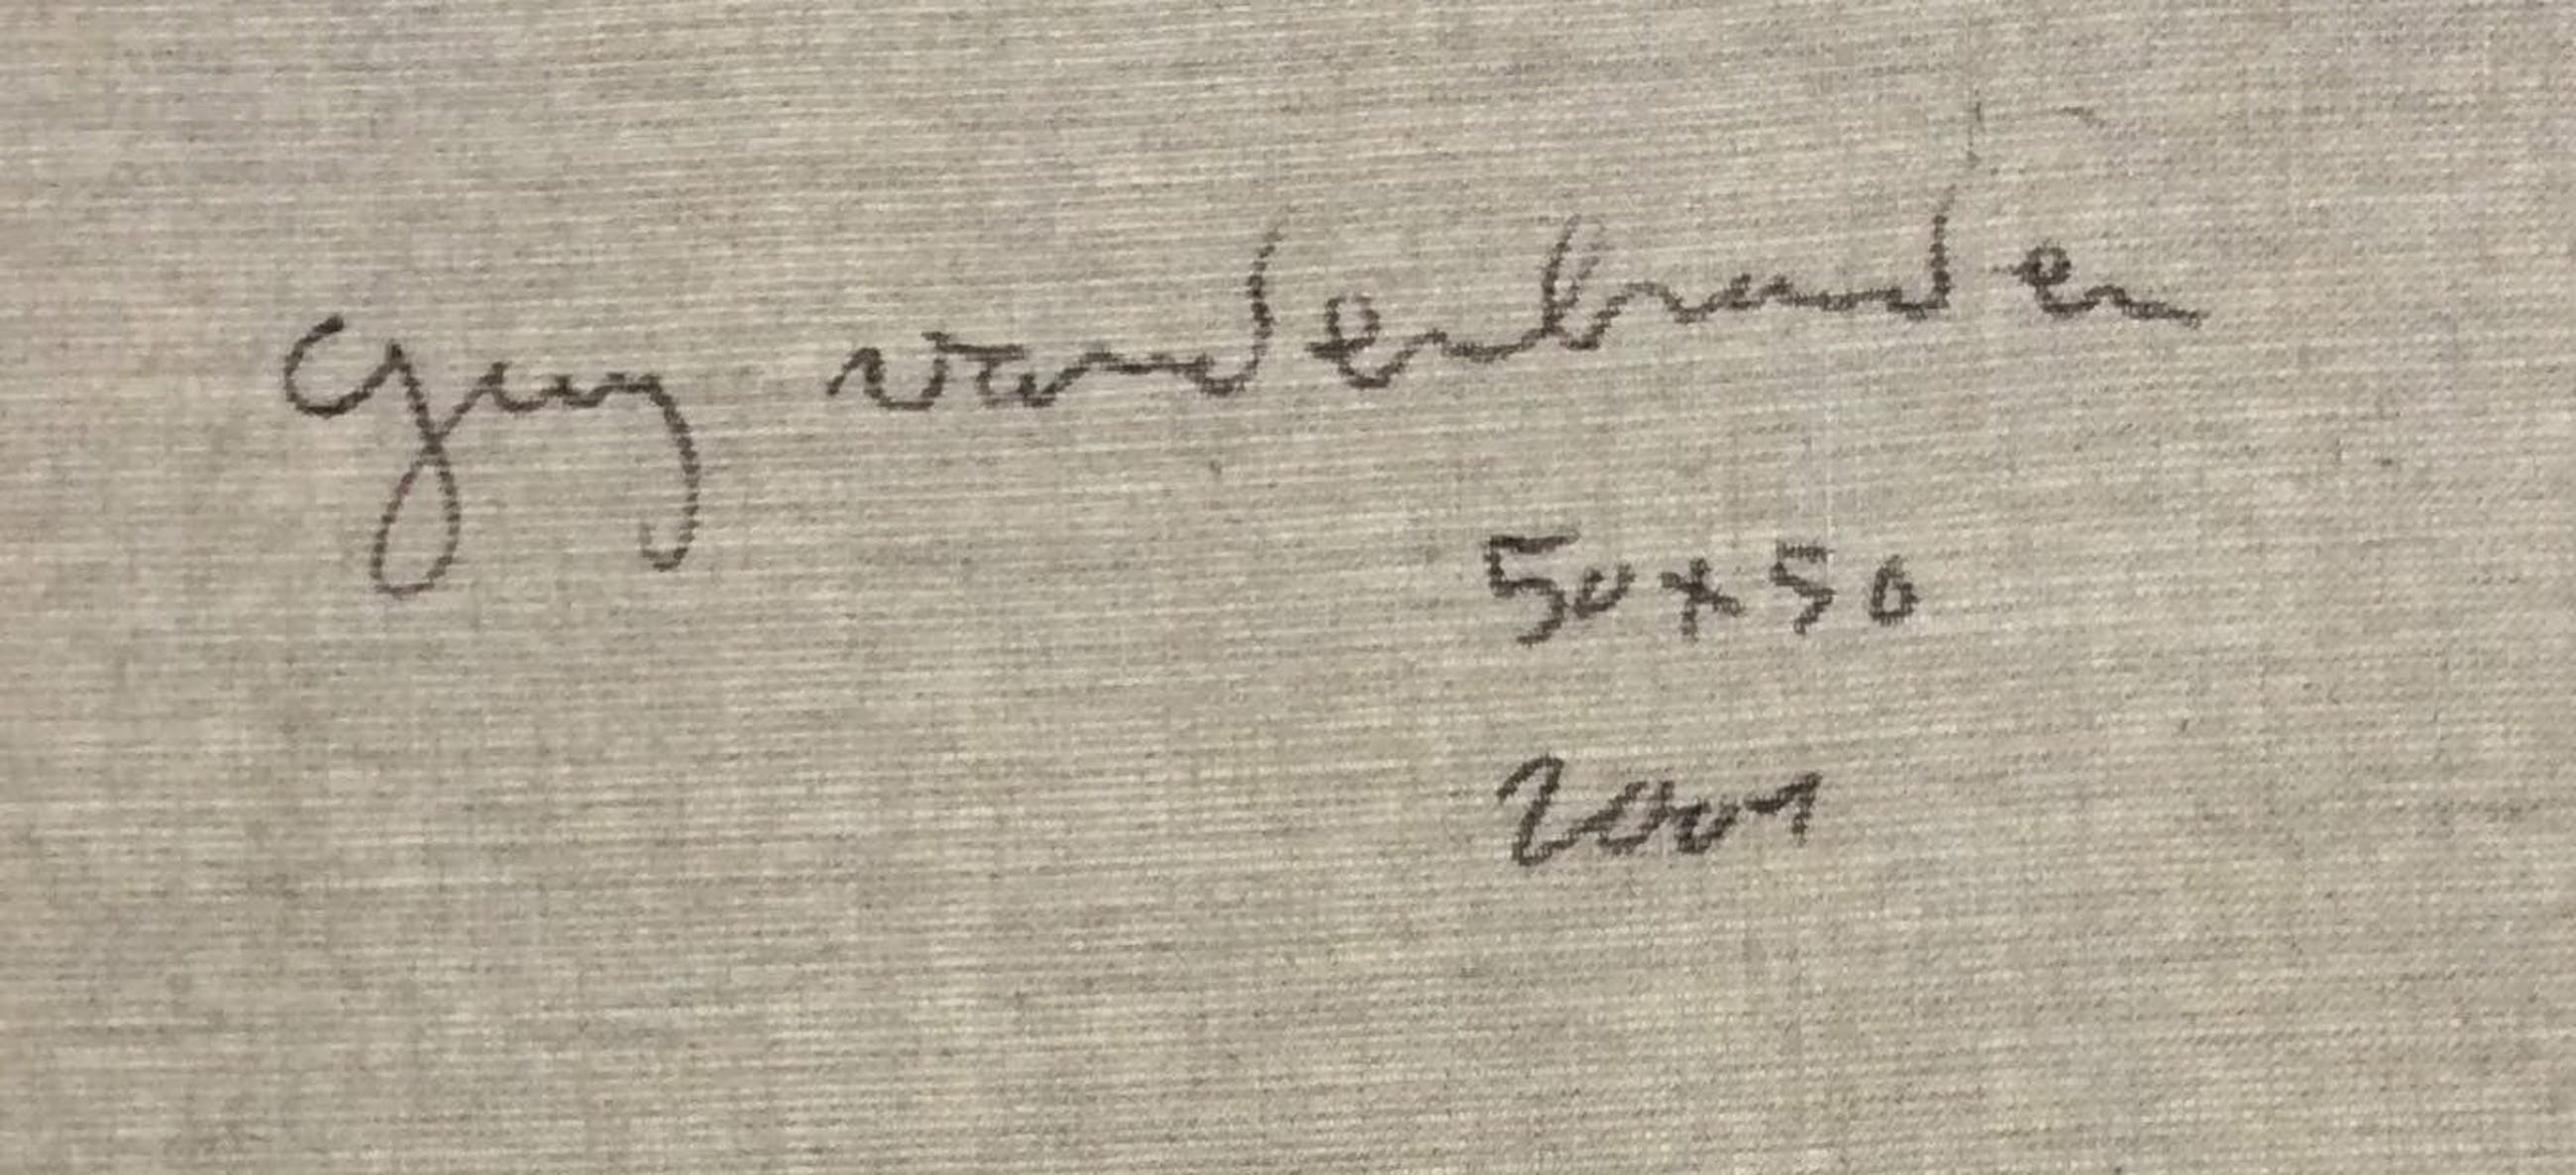 Guy vandenbranden
50x50
2001